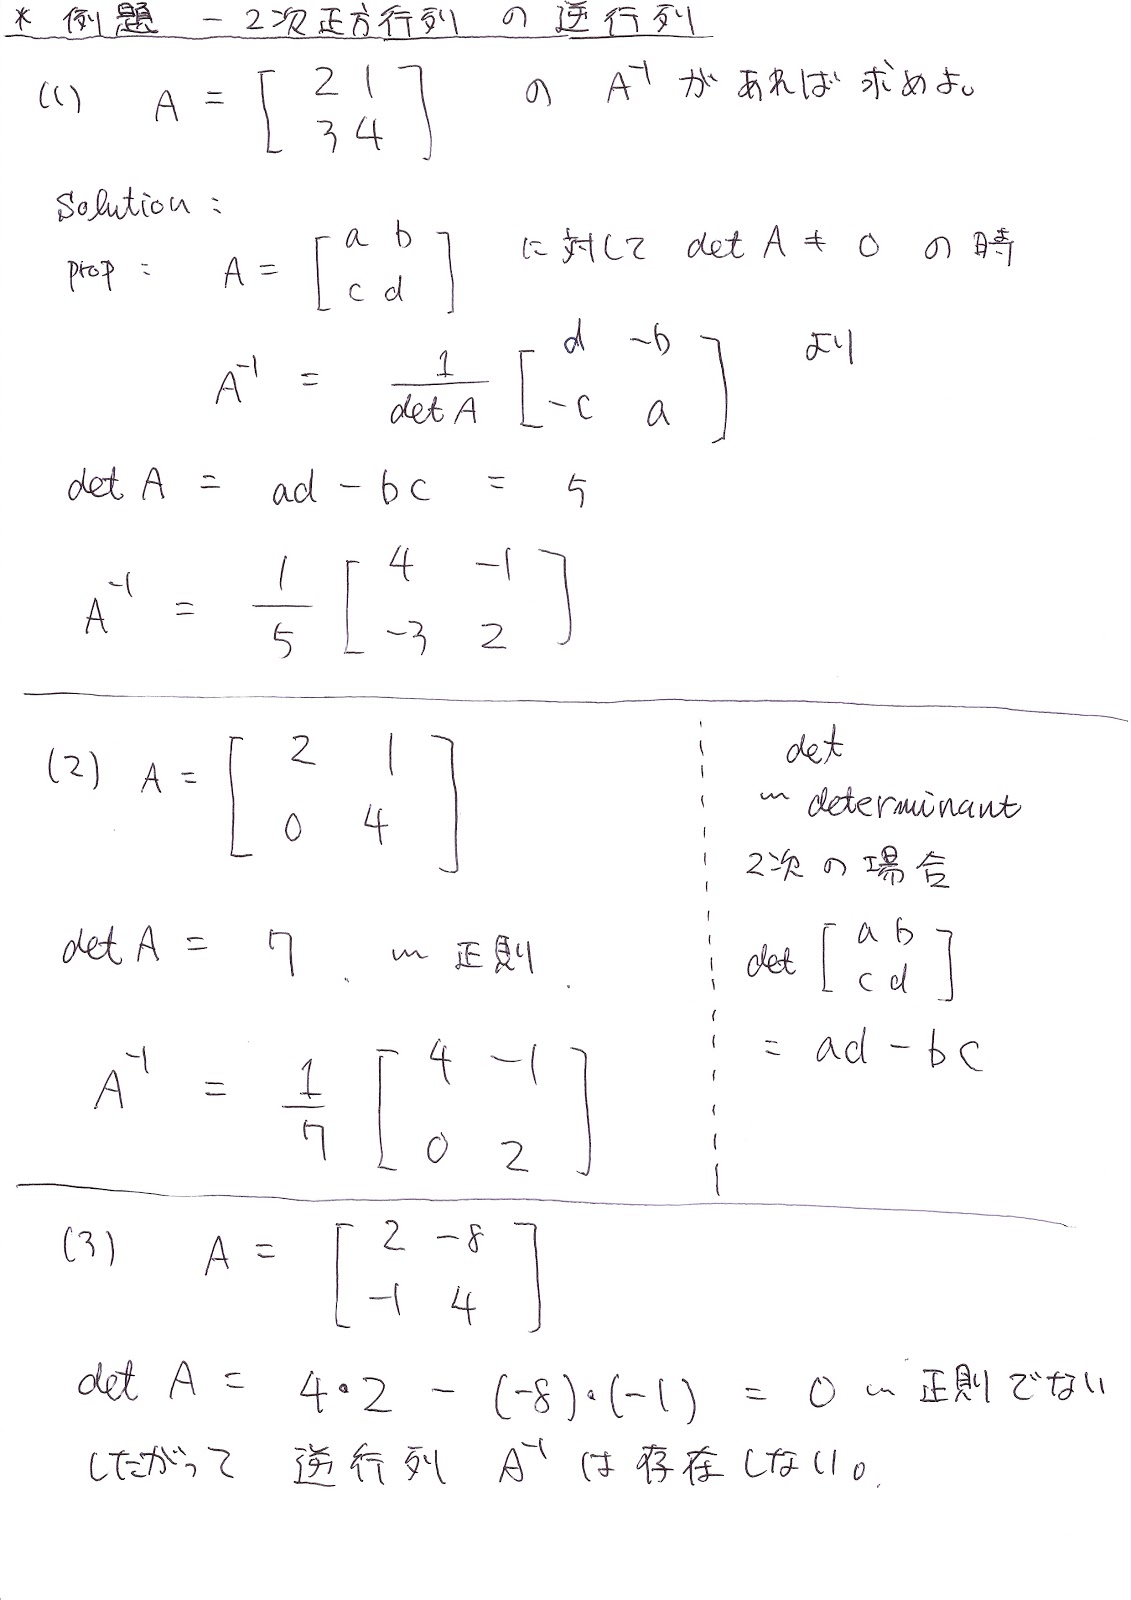 * 例題 - 2次正方行列 の 逆行列
(1) A = [ 2 1
3 4 ] の A⁻¹ が あれば 求めよ。
Solution :
prop : A = [ a b
c d ] に対して det A ≠ 0 の時
A⁻¹ = 1/det A [ d -b
-c a ] より
det A = ad - bc = 5
A⁻¹ = 1/5 [ 4 -1
-3 2 ]
(2) A = [ 2 1
0 4 ]
det A = 7 . 〜 正則 .
A⁻¹ = 1/7 [ 4 -1
0 2 ]
det
〜 determinant
2次の場合
det [ a b
c d ]
= ad - bc
(3) A = [ 2 -8
-1 4 ]
det A = 4・2 - (-8)・(-1) = 0 〜 正則でない
したがって 逆行列 A⁻¹ は存在しない。